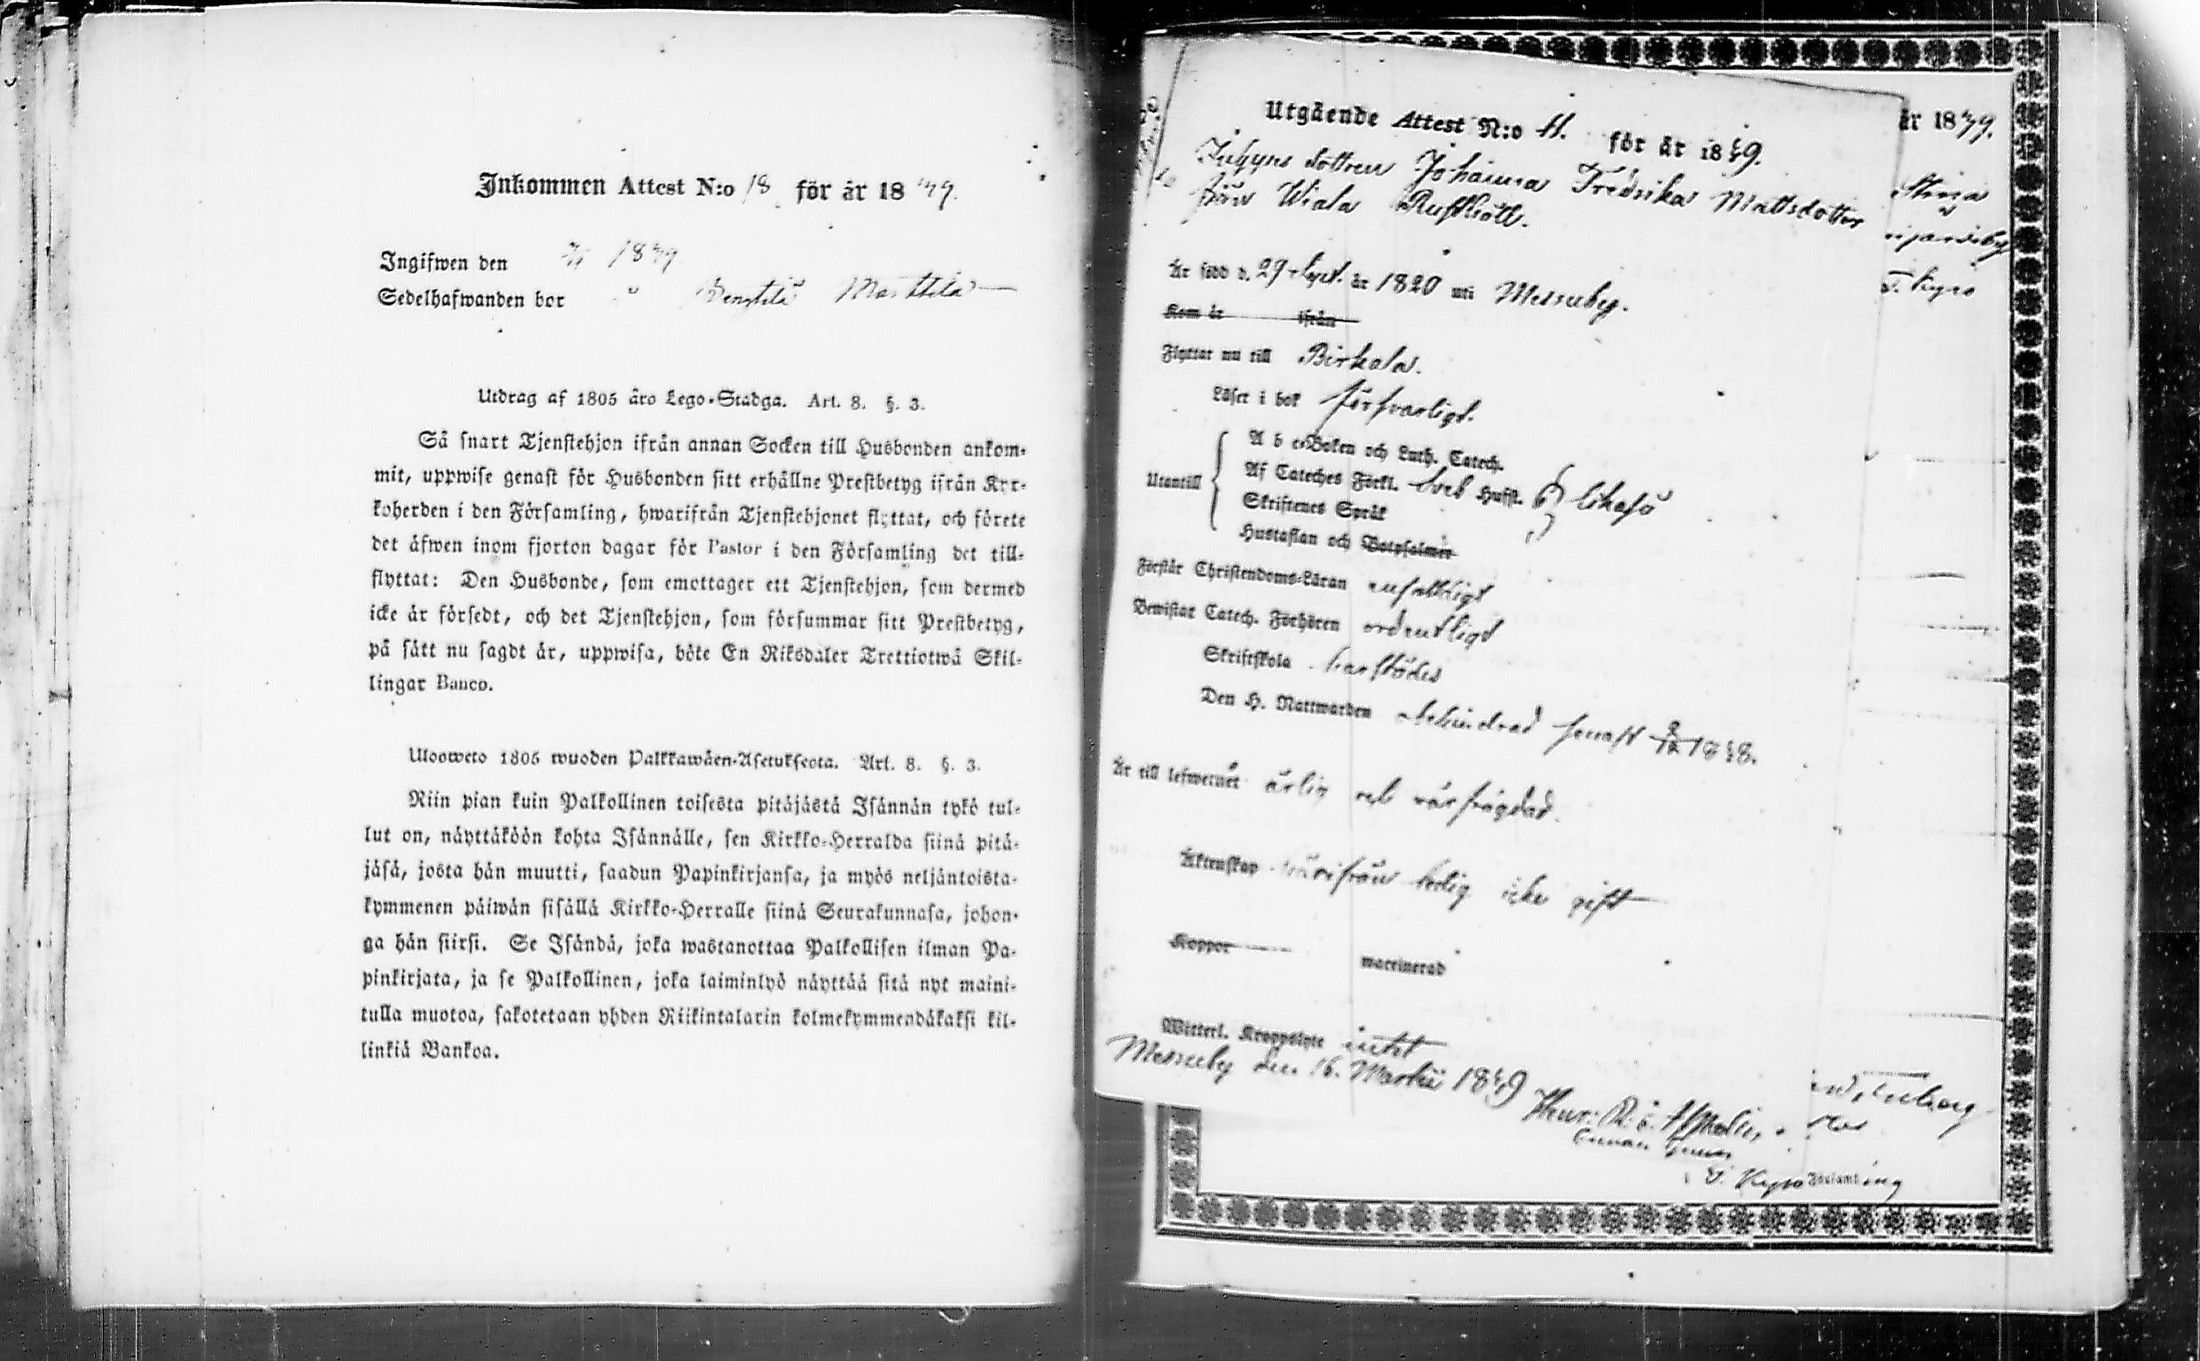 Inkommen Attest N:o 18 för år 1849.
Ingifwen den 1849
Sedelhafwanden bor Marttila
Utdrag af 1805 års Lego-Stadga. Art. 8. §. 3.
Så snart Tjenstehjon ifrån annan Socken till Husbonden ankom-
mit, uppwise genast för Husbonden sitt erhållne Prestbetyg ifrån Kyr-
koherden i den Församling, hwarifrån Tjenstehjonet flyttat, och förete
det äfwen inom fjorton dagar för Pastor i den Församling det till-
flyttat: Den Husbonde, som emottager ett Tjenstehjon, som dermed
icke är försedt, och det Tjenstehjon, som försummar sitt Prestbetyg,
på sätt nu sagdt är, uppwisa, böte En Riksdaler Trettiotwå Skil-
lingar Banco.
Uloosweto 1805 wuoden Palkkawäen-Asetuksesta. Art. 8. §. 3.
Niin pian kuin Palkollinen toisesta pitäjästä Isännän tykö tul-
lut on, näyttäköön kohta Isännälle, sen Kirkko-Herralda siinä pitä-
jäsä, josta hän muutti, saadun Papinkirjansa, ja myös neljäntoista-
kymmenen päiwän sisällä Kirkko-Herralle siinä Seurakunnasa, johon-
ga hän siirsi. Se Isändä, joka wastanottaa Palkollisen ilman Pa-
pinkirjata, ja se Palkollinen, joka laiminlyö näyttää sitä nyt maini-
tulla muotoa, sakotetaan yhden Riikintalarin kolmekymmendäkaksi kil-
linkiä Bankoa.
Utgående Attest N:o 11. för år 1849.
dottren Johanna Fredrika Mattsdotter
från Wiala Rusthåll.
Är född d. 29 Sept. år 1820 uti Messuby.
Kom år ifrån
Flyttar nu till Birkala.
Läser i bok försvarligt.
Utantill
A b c-Boken och Luth. Catech.
Af Cateches Förkl. Sveb Husst. likaså
Skriftenes Språk
Hustaflan och Botpsalmer
Förstår Christendoms-Läran enfaldigt
Bewistat Catech. Förhören ordentligt
Skriftskola
Den H. Nattwarden obehindrad senast 1848.
Är till lefwernet ärlig och välfrägdad.
Äktenskap härifrån ledig icke gift
Koppor waccinerad
Witterl. Kroppslyte intet
Messuby den 16. Martii 1849
T. Kyro Församling
år 1849.
Stina
T. Kyro